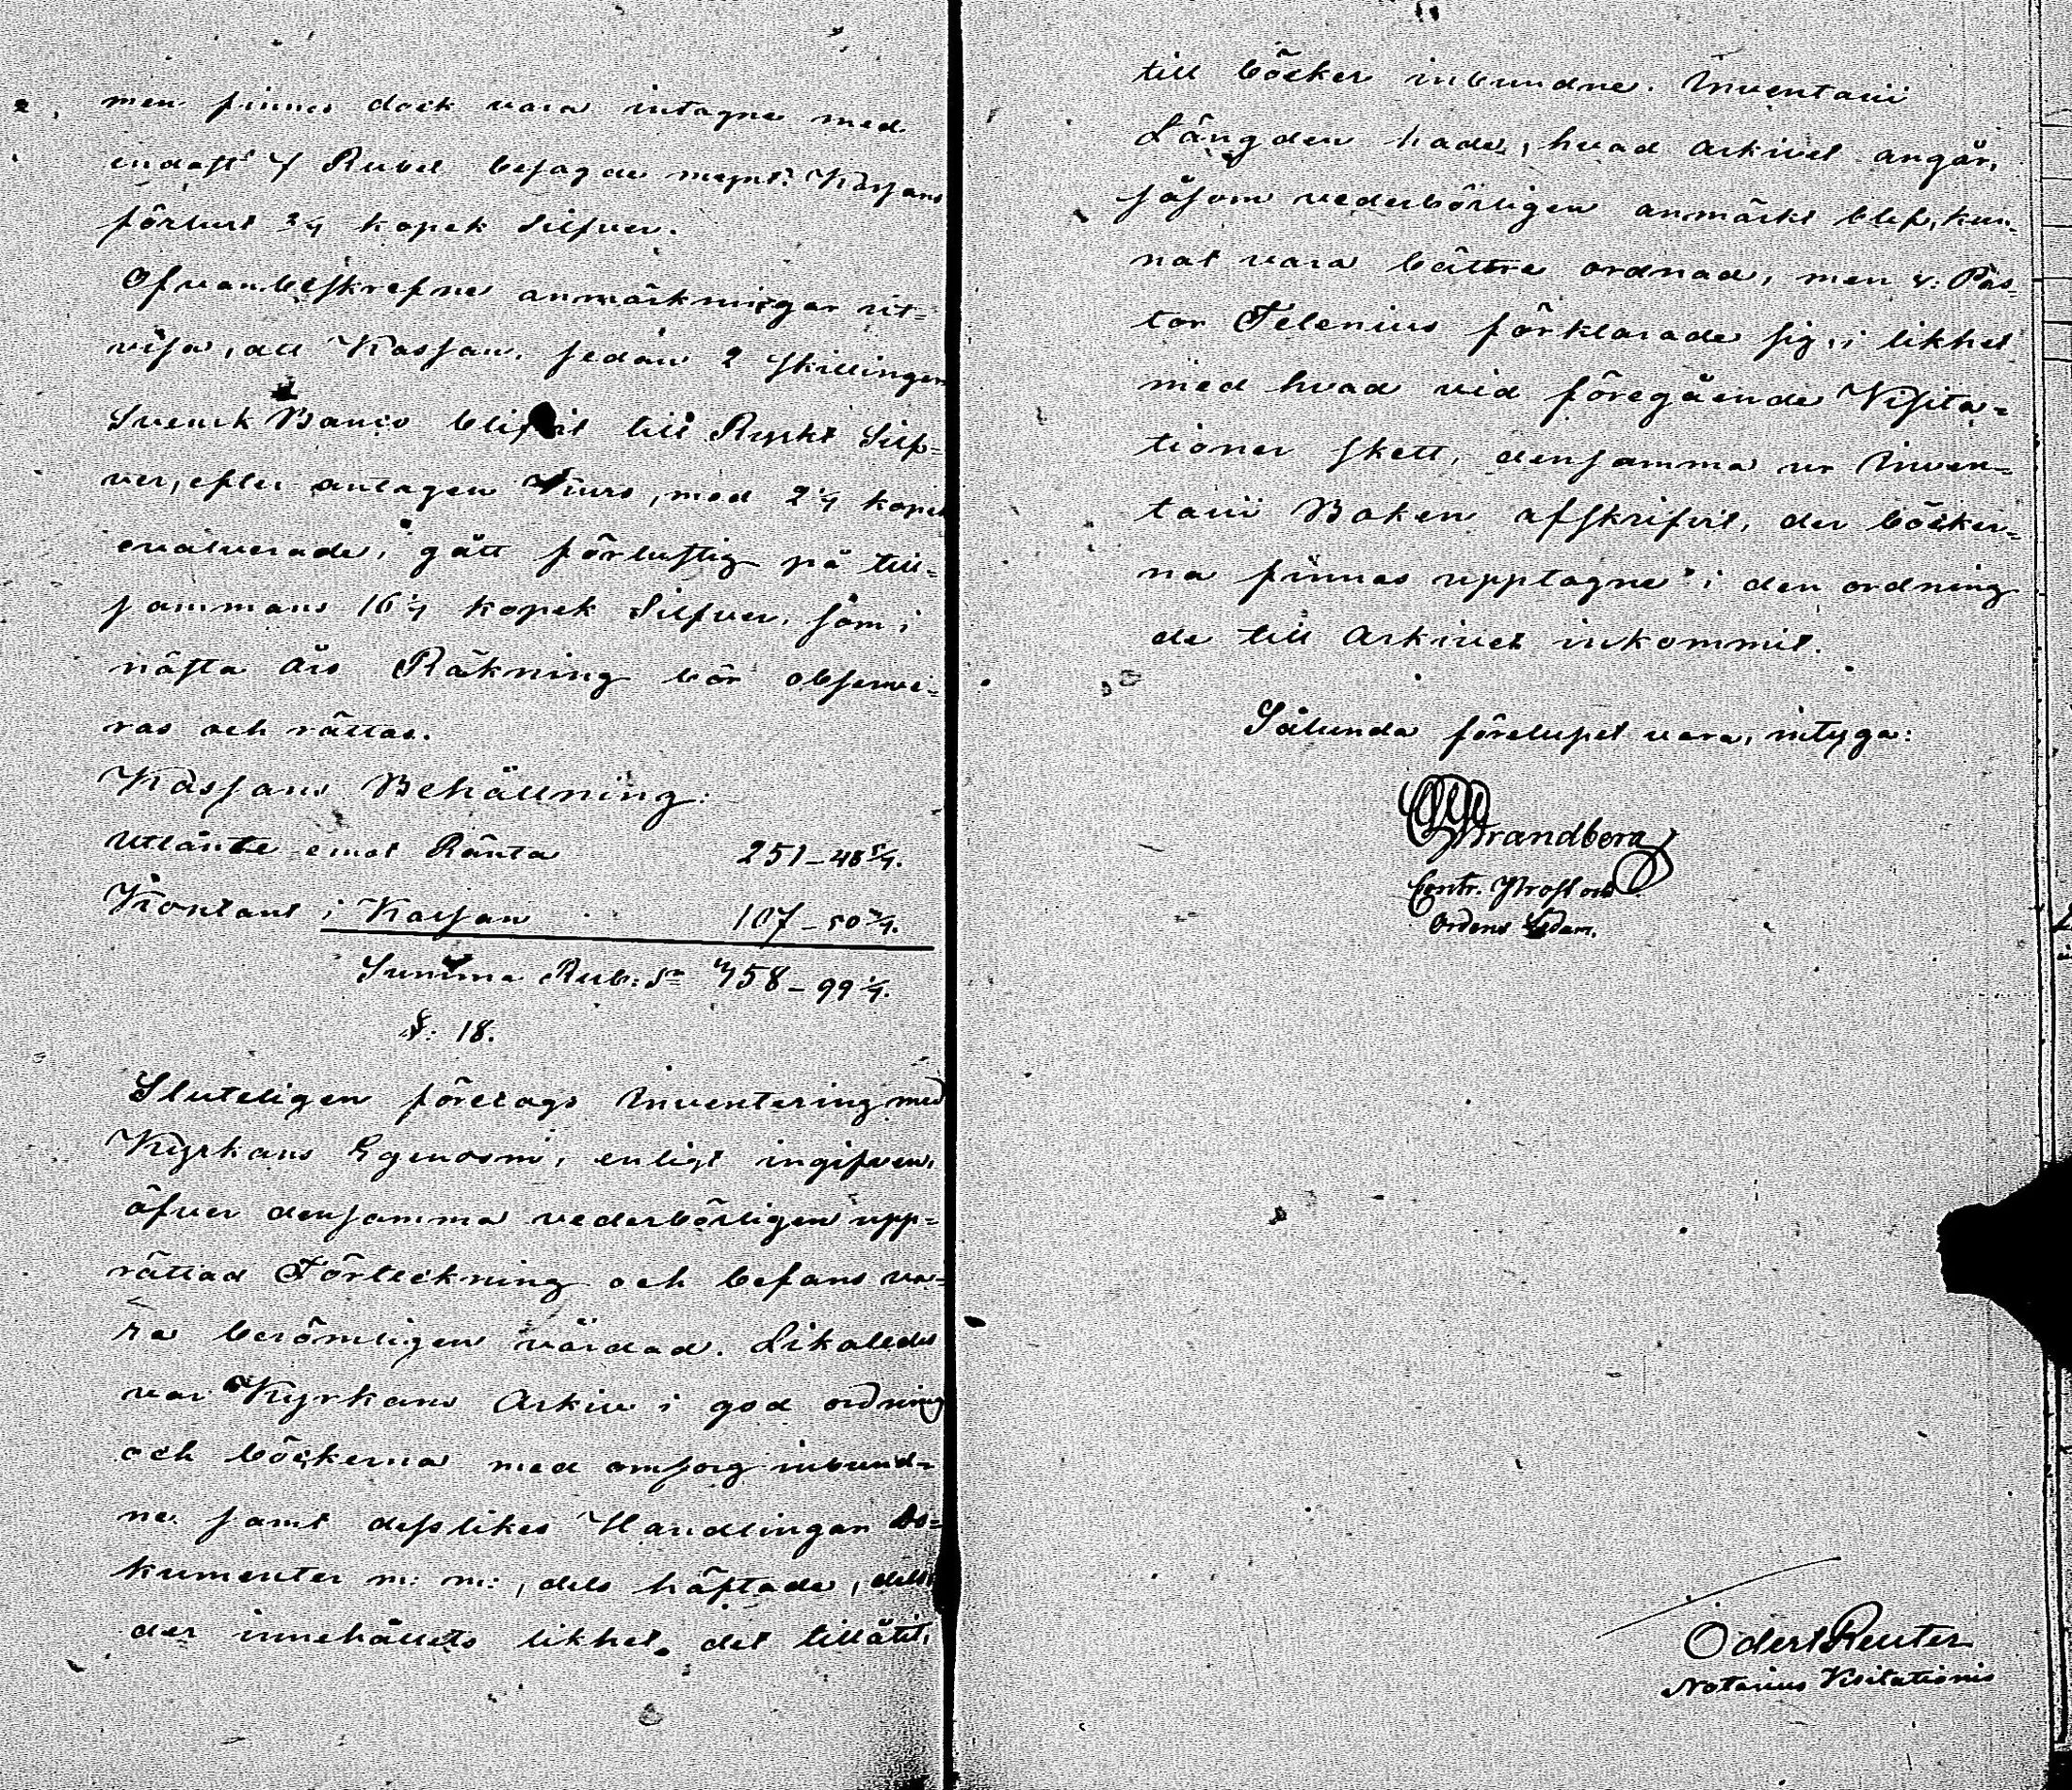 men finnes dock vara intagne med
endast 7 Rubel besagde mynt. Kassans
förlust 3/4 kopek Silfver.
Ofvanbeskrefne anmärkningar ut=
visa, att Kassan, sedan 2 Skillingen
Svensk Banco blifvit till Ryskt Silf=
ver, efter antagen Kurs, med 2 1/4 kopek
evalverade, gått förlustig på till=
sammans 16 1/4 kopek Silfver, som i
nästa års Räkning bör observe=
ras och rättas.
Kassans Behållning:
Utlånte emot Ränta 251-48 5/7.
Kontant i Kassan 107-50 3/7.
Summa Rub: Sr 358-99 1/7.
§: 18.
Sluteligen företogs Inventering med
Kyrkans Egendom, enligt ingifven,
öfver densamma vederbörligen upp=
rättad Förteckning och befans va=
ra berömligen vårdad. Likaledes
var Kyrkans Arkiv i god ordning
och böckerna med omsorg inbund=
ne samt desslikes Handlingar Do=
kumenter m: m:, dels häftade, dels,
der innehållets likhet det tillåtit,
till böcker inbundne. Inventarii
Längden hade, hvad Arkivet angår,
såsom vederbörligen anmärkt blef, kun=
nat vara bättre ordnad, men v: Pas=
tor Telenius förklarade sig, i likhet
med hvad vid föregående Visita=
tioner skett, densamma ur Inven=
tarii Boken afskrifvit, der böcker=
na finnas upptagne i den ordning
de till Arkivet inkommit.
Sålunda förelupet vara, intyga:
Strandberg
Contr. Prost och
Ordens Ledam.
Odert Reuter
Notarius Visitationis